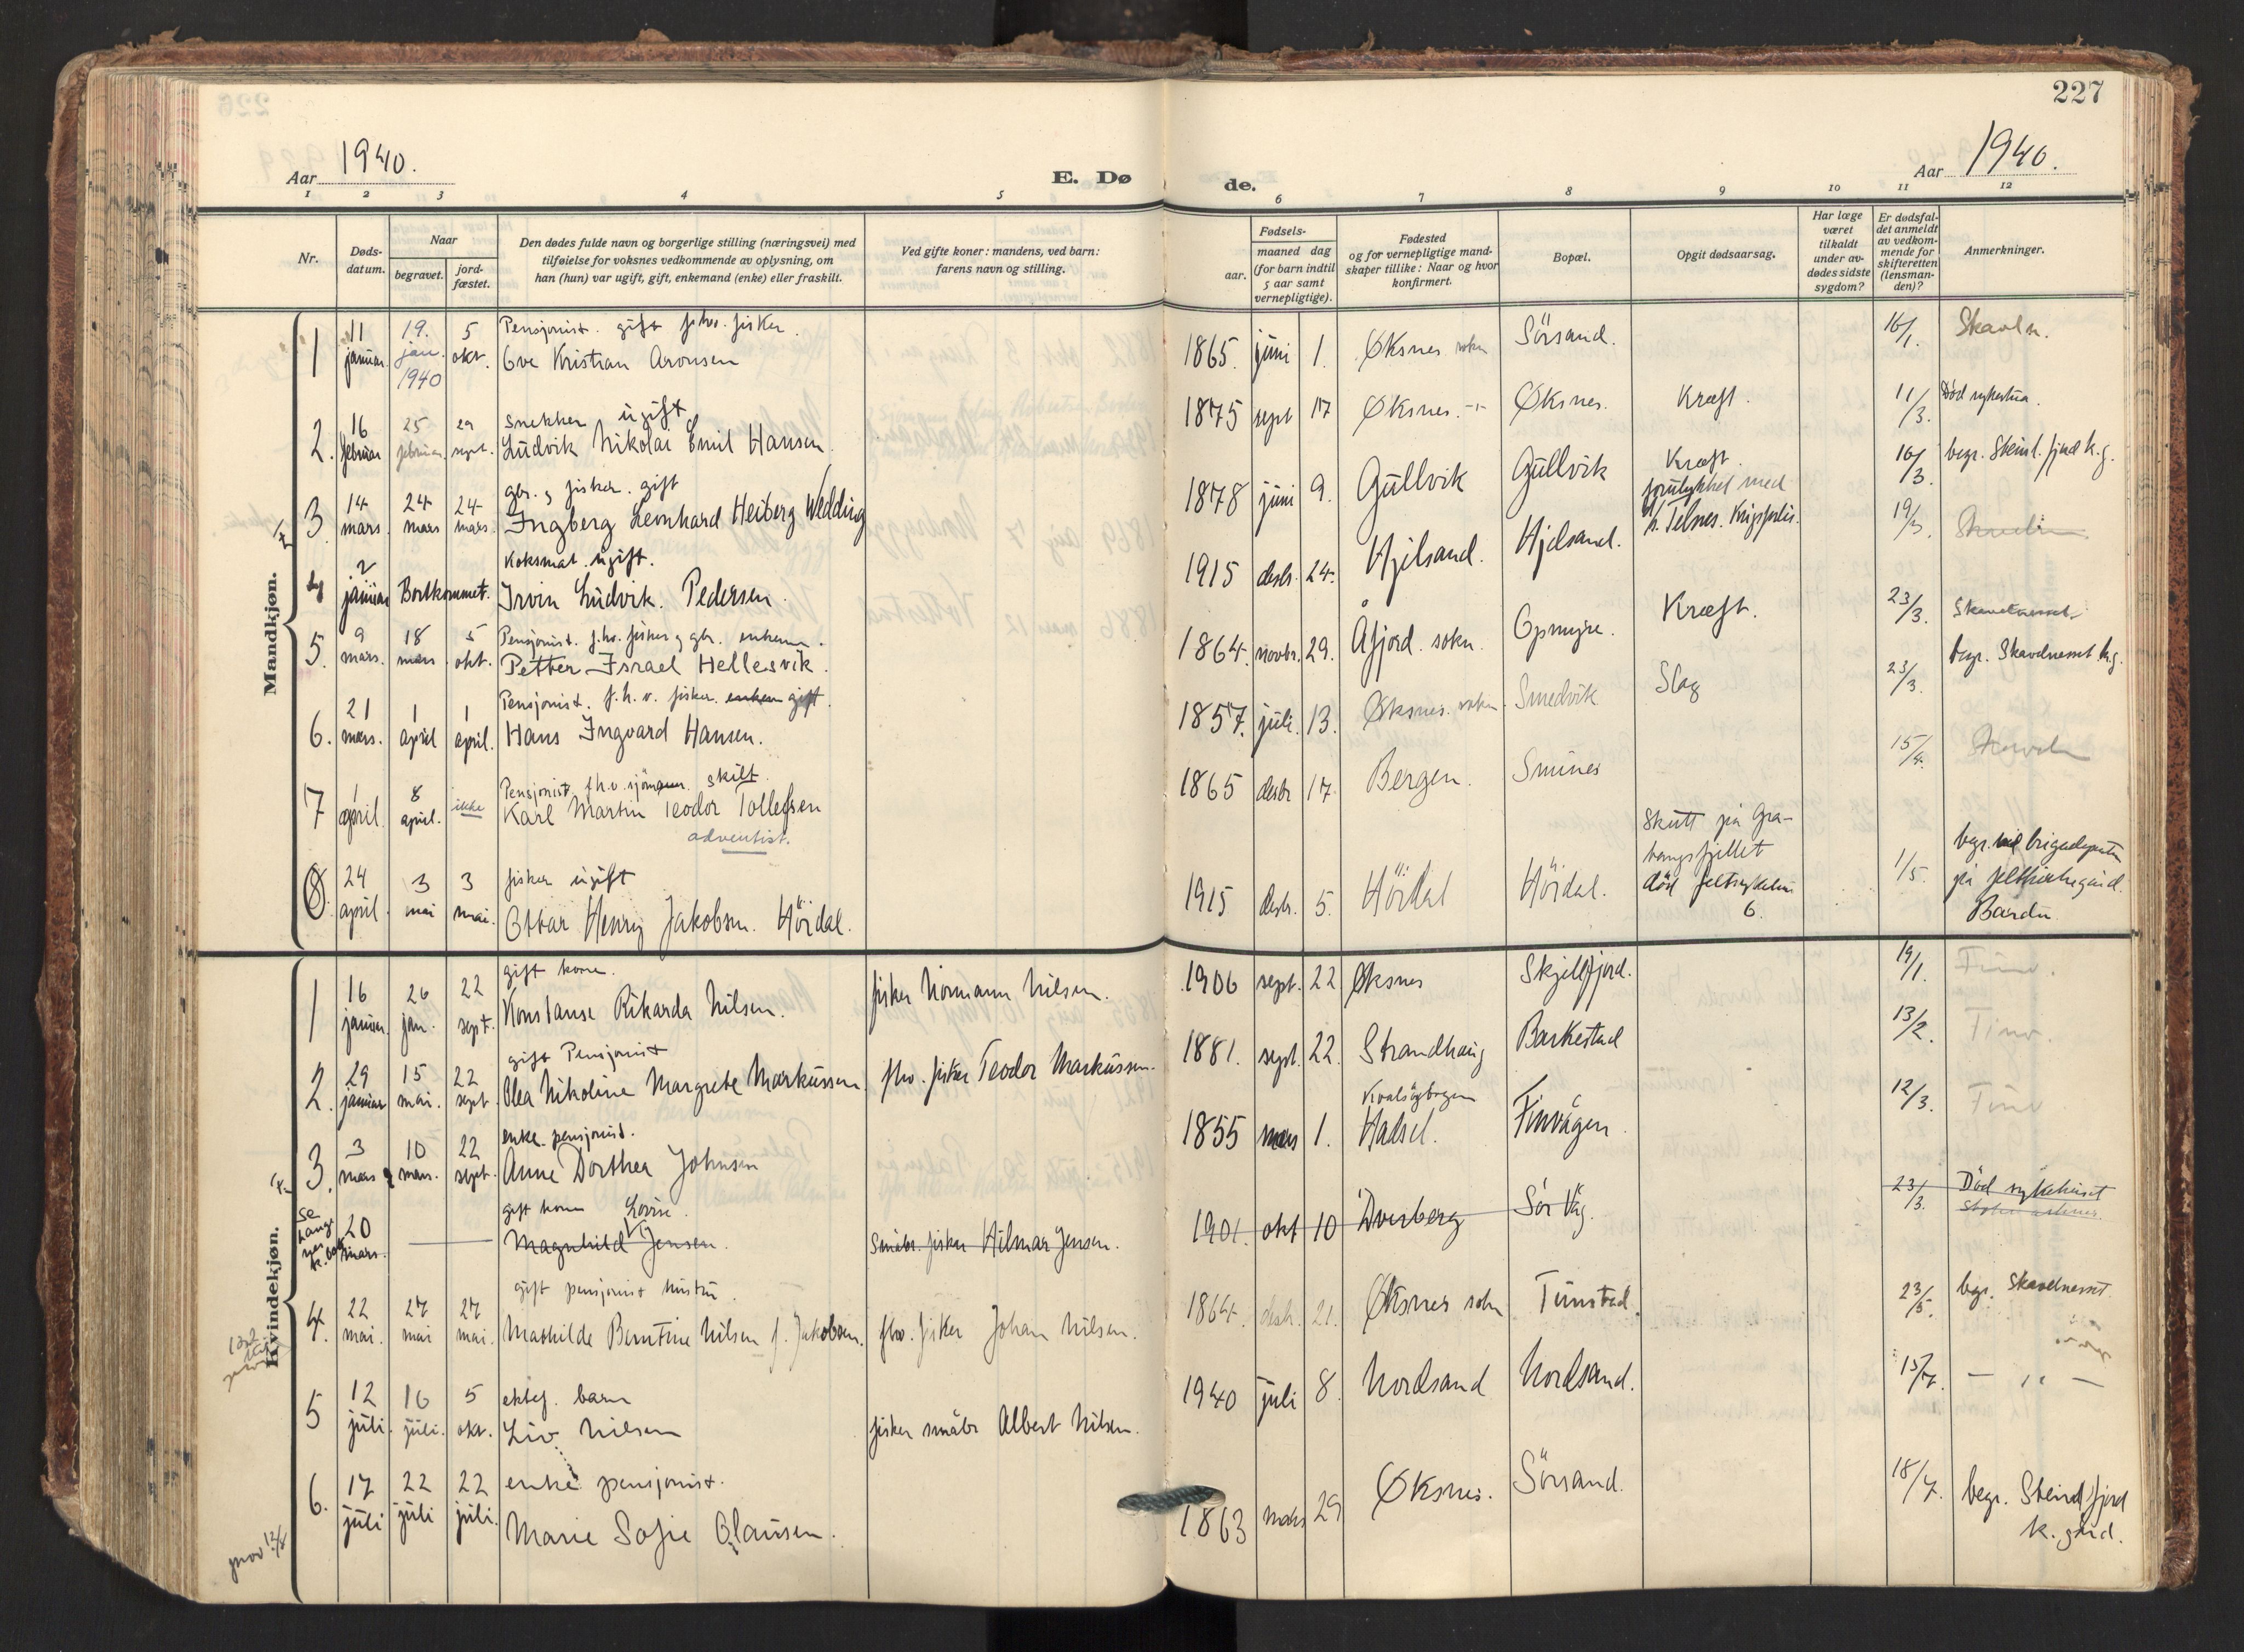 227
Aar 1940.
E. Døde.
Aar 1940.
1 2 3 4 5 6 7 8 9 10 11 12
Nr.
Døds-
datum.
Naar
begravet.
jord-
fæstet.
Den dødes fulde navn og borgerlige stilling (næringsvei) med
tilføielse for voksnes vedkommende av oplysning, om
han (hun) var ugift, gift, enkemand (enke) eller fraskilt.
Ved gifte koner: mandens, ved barn:
farens navn og stilling.
Fødsels-
aar.
maaned dag
(for barn indtil
5 aar samt
vernepligtige).
Fødested
og for vernepligtige mand-
skaper tillike: Naar og hvor
konfirmert.
Bopæl.
Opgit dødsaarsag.
Har læge
været
tilkaldt
under av-
dødes sidste
sygdom?
Er dødsfal-
det anmeldt
av vedkom-
mende for
skifteretten
(lensman-
den)?
Anmerkninger.
Mandkjøn.
1 11 januar 19. jan. 1940 5 okt. Pensjonist. gift fhv. fisker.
Ove Kristian Aronsen 1865. juni 1. Øksnes sokn Sörsand. 16/1.
2. 16 februar 25 februar 29 sept. Snekker ugift
Ludvik Nikolai Emil Hansen. 1875 sept 17 Øksnes. Øksnes. Kræft. 11/3. Död sykestua.
3. 14 mars. 24 mars 24 mars. gbr. og fisker. gift
Ingberg Leonhard Heiberg Wedding 1878 juni 9. Gullvik Gullvik Kræft. 16/3. begr. Steinl.fjord k.g.
4 2 januar Bortkommet. Koksmat. ugift.
Irvin Ludvik. Pedersen. 1915 desbr. 24. Hjelsand. Hjelsand. forulykket med
19/3.
5. 9 mars. 18 mars 5 okt. Pensjonist. f.hv. fisker og gbr. enkem.
Petter Israel Hellesvik. 1864. novbr. 29. Åfjord. sokn. Kræft. 23/3.
6. 21 mars. 1 april 1 april. Pensjonist. f.h.v. fisker. enkem gift.
Hans Ingvard Hansen. 1857. juli. 13. Øksnes. sokn. Smedvik Slag 23/3. begr. Skavlnesset k.g.
7 1 april. 8 april. ikke Pensjonist. f.h.v. sjömann. skilt.
Karl Martin Teodor Tollefsen
adventist. 1865 desbr 17 Bergen. Smines 15/4.
8. 24 april. 3 mai 3 mai. fisker ugift
Ottar Henry Jakobsen. Hördal. 1915 desbr. 5. Hördal Hördal. Skutt på Gra-
tangsfjellet
död feltsykehus
6. 1/5.
på feltkirkegård.
Bardu
Kvindekjøn.
1 16 januar. 26 jan. 22 sept. gift kone.
Konstanse Rikarda Nilsen. fisker Normann Nilsen. 1906 sept. 22 Øksnes Skjellfjord. 19/1.
2. 29 januar 15 mai. 22 sept. gift Pensjonist
Olea Nikoline Margrete Markussen fhv. fisker Teodor Markussen. 1881. sept. 22. Strandhaug Barkestad 13/2.
3. 3 mars 10 mars. 22 sept. enke. pensjonist.
Anne Dorthea Johnsen 1855 mars 1. Hadsel. Finvågen. 12/3.
20 mars. gift kone Lovise
Magnhild Jensen. Småbr. fisker Hilmar Jensen. 1901. okt 10 Dverberg Sör Våg. 23/3. Död sykehuset
4. 22 mai. 27 mai 27 mai. gift pensjonist hustru.
Mathilde Berntine Nilsen f. Jakobsen. fhv. fisker Johan Nilsen. 1864. desbr. 21. Øksnes sokn Tunstad. 23/5. begr. Skavlnesset
5 12 juli. 16 juli. 5 okt. ektef. barn
Liv. Nilsen fisker småbr Albert Nilsen. 1940 juli 8. Nordsand Nordsand. 15/7. — " —
6. 17 juli 22 juli 22 juli. enke pensjonist.
Marie Sofie Olausen. 1863 mars 29 Øksnes. Sörsand. 18/7. begr. Steinlfjord
k. gård.
prov 12/8